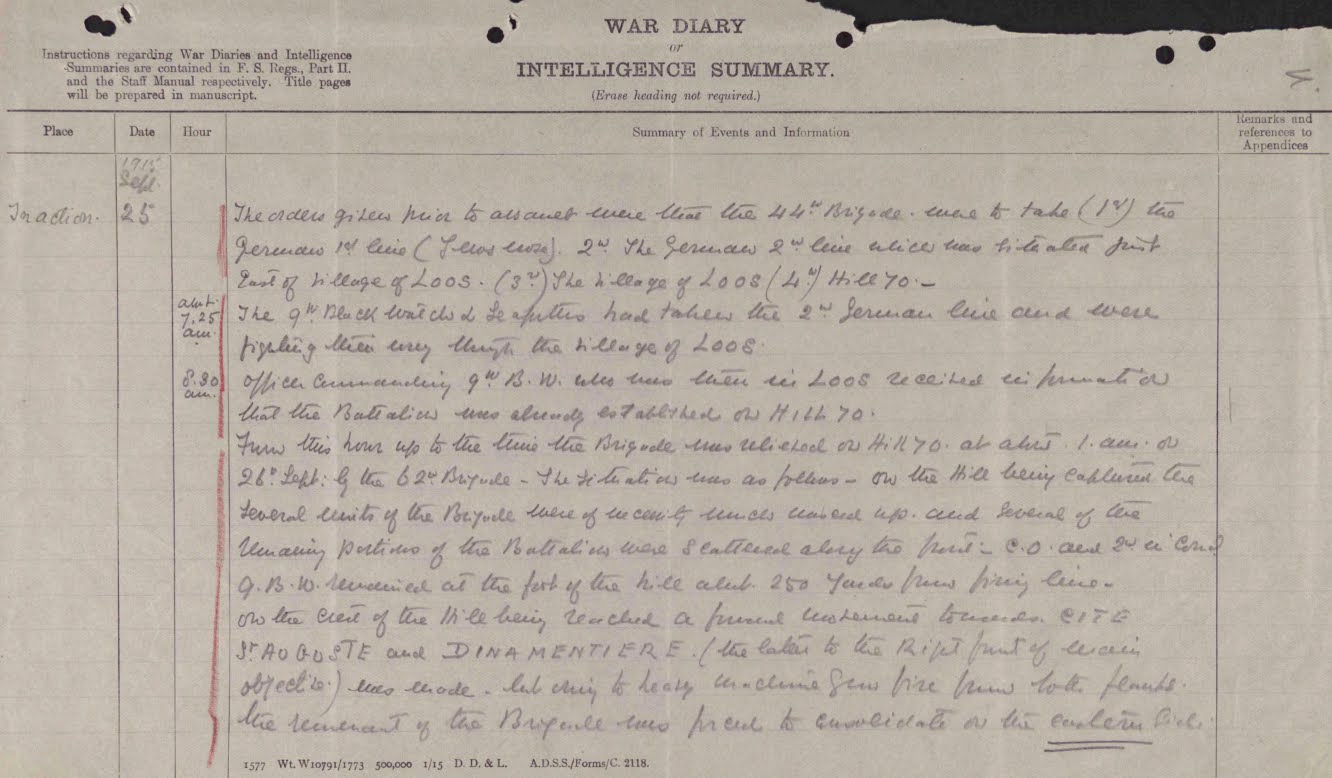 WAR DIARY
or
INTELLIGENCE SUMMARY.
(Erase heading not required.)
Instructions regarding War Diaries and Intelligence
Summaries are contained in F. S. Regs., Part II.
and the Staff Manual respectively. Title pages
will be prepared in manuscript.
Place
Date
Hour
Summary of Events and Information
Remarks and
references to
Appendices
1915
Sept.
In action. 25 The orders given prior to assault were that the 44th Brigade. were to take (1st) the
German 1st line ( 2nd. The German 2nd line which was situated just
East of village of LOOS. (3rd) The village of LOOS (4th) Hill 70. —
abt. 7.25 am. The 9th Black Watch & Seaforths had taken the 2nd German line and were
fighting their way through the village of LOOS.
8.30 am. Officer Commanding 9th B.W. who was then in LOOS received information
that the Battalion was already established on HILL 70.
From this hour up to the time the Brigade was relieved on Hill 70. at abt. 1. am. on
26th Sept: by the 62nd Brigade - The situation was as follows - on the Hill being captured the
several units of the Brigade were of necessity much mixed up. and several of the
remaining portions of the Battalion were scattered along the front - C.O. and 2nd in Comd
9.B.W. remained at the foot of the hill abt. 250 yards from firing line -
on the crest of the Hill being reached a forward movement towards CITE
ST AUGUSTE and DINAMENTIERE. (the latter to the Right front of main
objective.) was made - but owing to heavy machine gun fire from both flanks.
the remnant of the Brigade was forced to consolidate on the eastern side
1577 Wt. W10791/1773 500,000 1/15 D. D. & L. A.D.S.S./Forms/C. 2118.